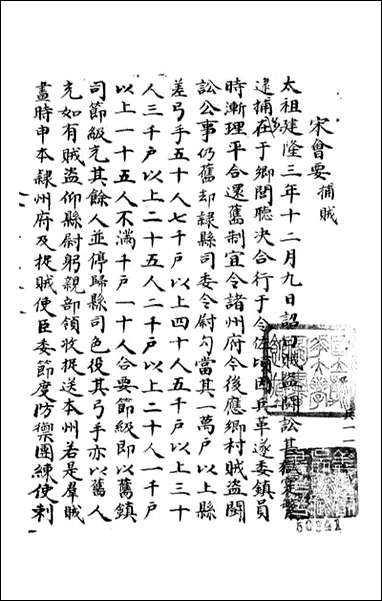 宋會要 捕賊
太祖建隆三年十二月九日詔曰賊盜鬭訟其獄寔繁
逮捕在于鄉閭聽決合行于令佐頃因兵革遂委鎮員
時漸理平合還舊制宜令諸州府今後應鄉村賊盜鬭
訟公事仍舊却隸縣司委令尉勾當其一萬戶以上縣
差弓手五十人七千戶以上四十人五千戶以上三十
人三千戶以上二十五人二千戶以上二十人一千戶
以上一十五人不滿千戶一十人合要節級即以舊鎮
司節級充其餘人並停歸縣司色役其弓手亦以舊人
充如有賊盜仰縣尉躬親部領收捉送本州若是羣賊
畫時申本隸州府及捉賊使臣委節度防禦團練使刺
50941